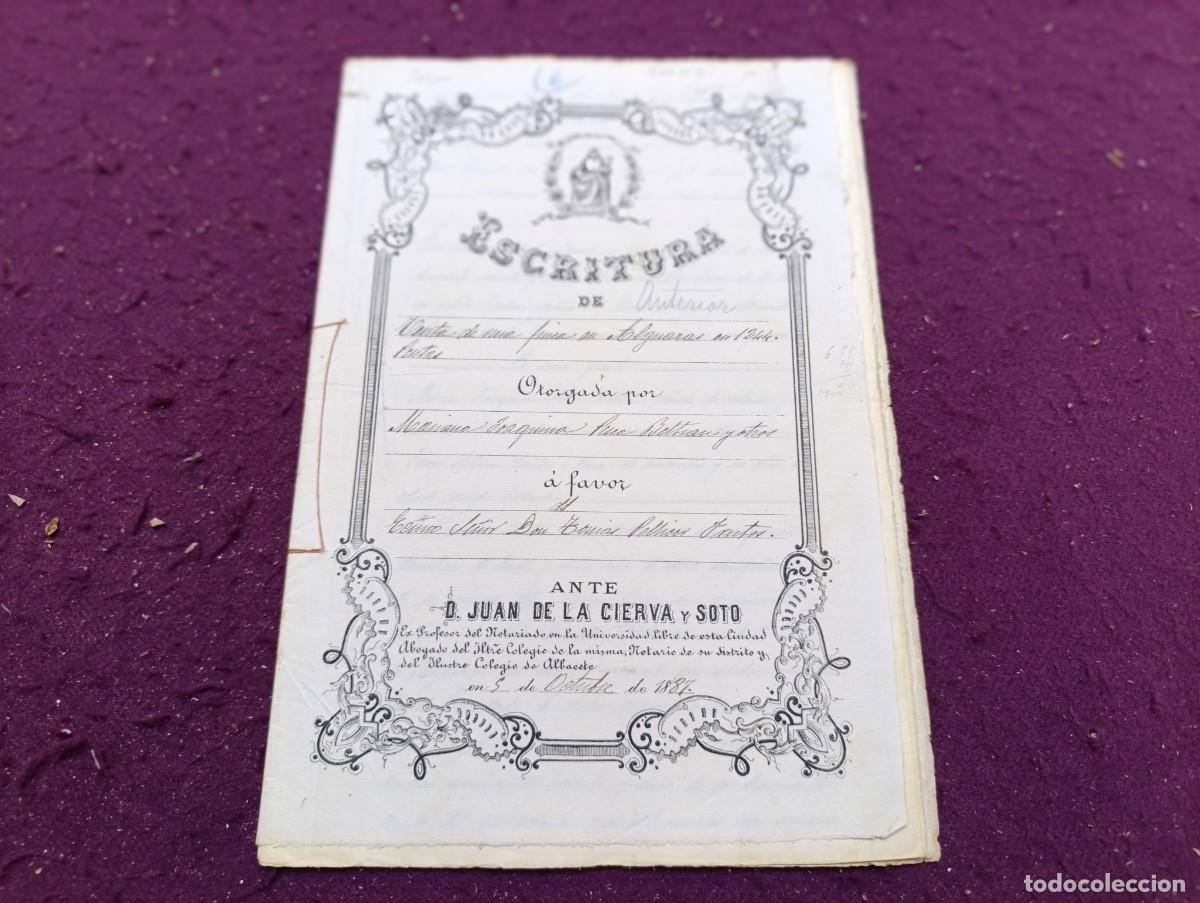 ESCRITURA
DE Anterior
Venta de una finca en Alguazas en 1244.
Otorgada por
Mariana Joaquina Beltran y otros
á favor
del
Señor Don Tomas Pellicer Frutos.
ANTE
D. JUAN DE LA CIERVA Y SOTO
Ex Profesor del Notariado en la Universidad libre de esta Ciudad
Abogado del Iltre Colegio de la misma, Notario de su distrito y
del Ilustre Colegio de Albacete
en 5 de Octubre de 1887.
todocoleccion